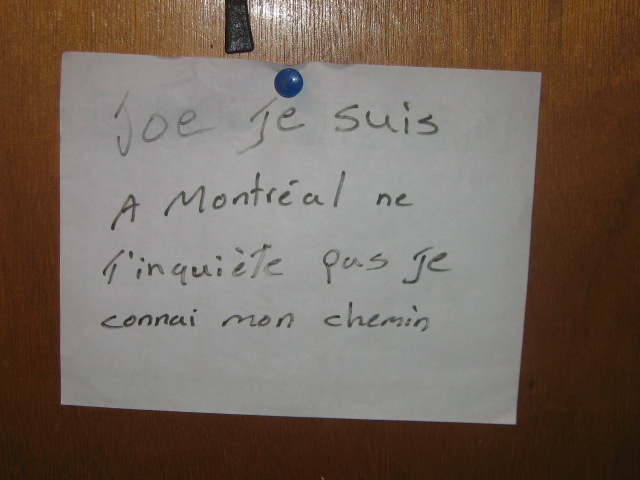 Joe Je suis
A Montréal ne
T'inquiète pas Je
connai mon chemin